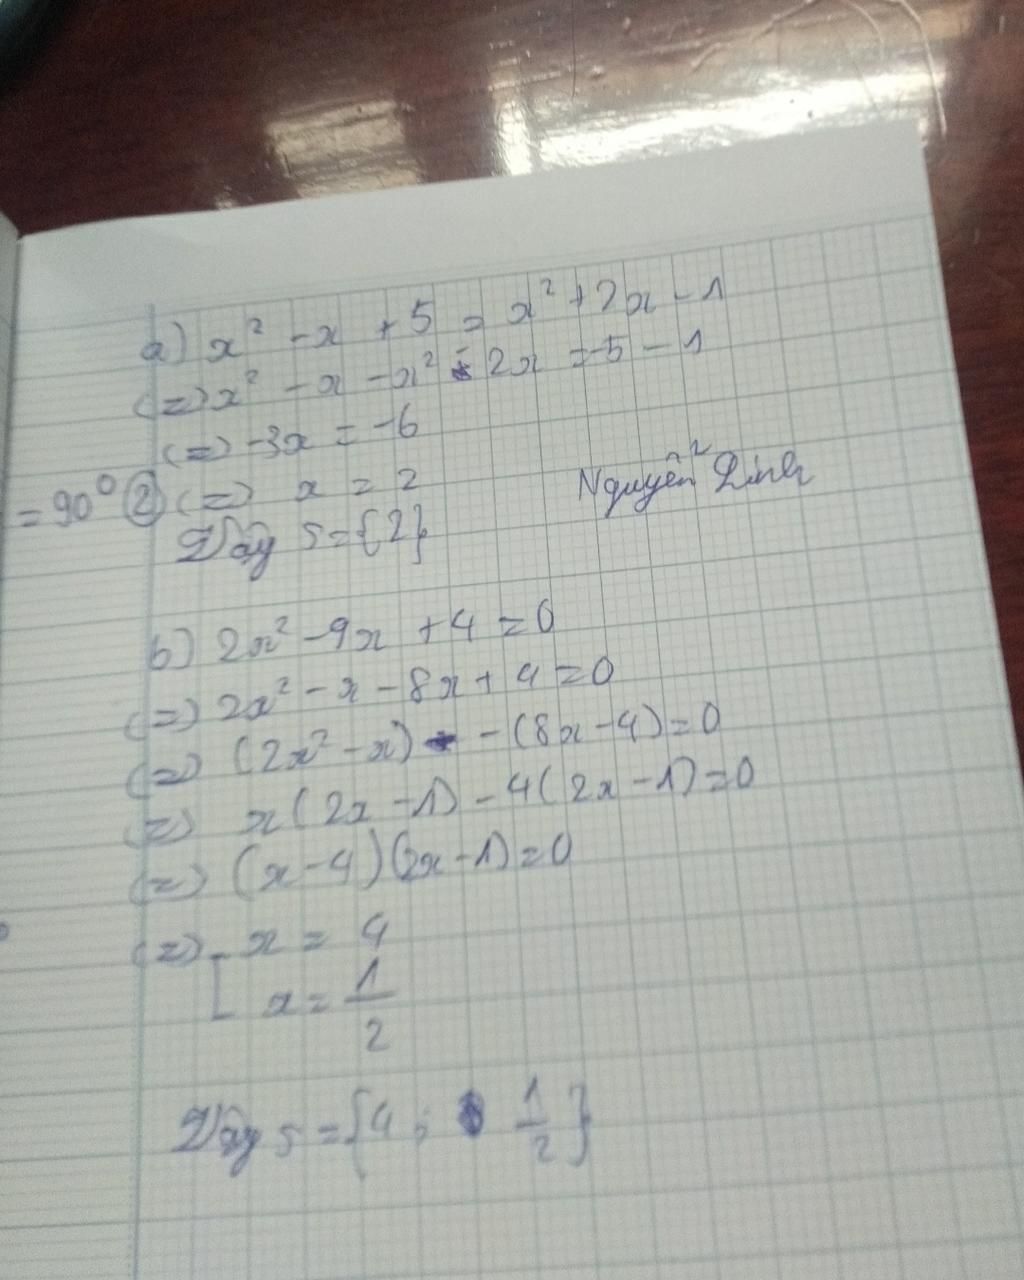 a) x² - x + 5 = x² + 2x - 1
(=) x² - x - x² - 2x = -5 - 1
(=) -3x = -6
= 90° ② (=) x = 2
Nguyễn² Linh
Vậy S = {2}
b) 2x² - 9x + 4 = 0
(=) 2x² - x - 8x + 4 = 0
(=) (2x² - x) - (8x - 4) = 0
(=) x(2x - 1) - 4(2x - 1) = 0
(=) (x - 4)(2x - 1) = 0
(=) [ x = 4
x = 1/2
Vậy S = {4 ; 1/2}